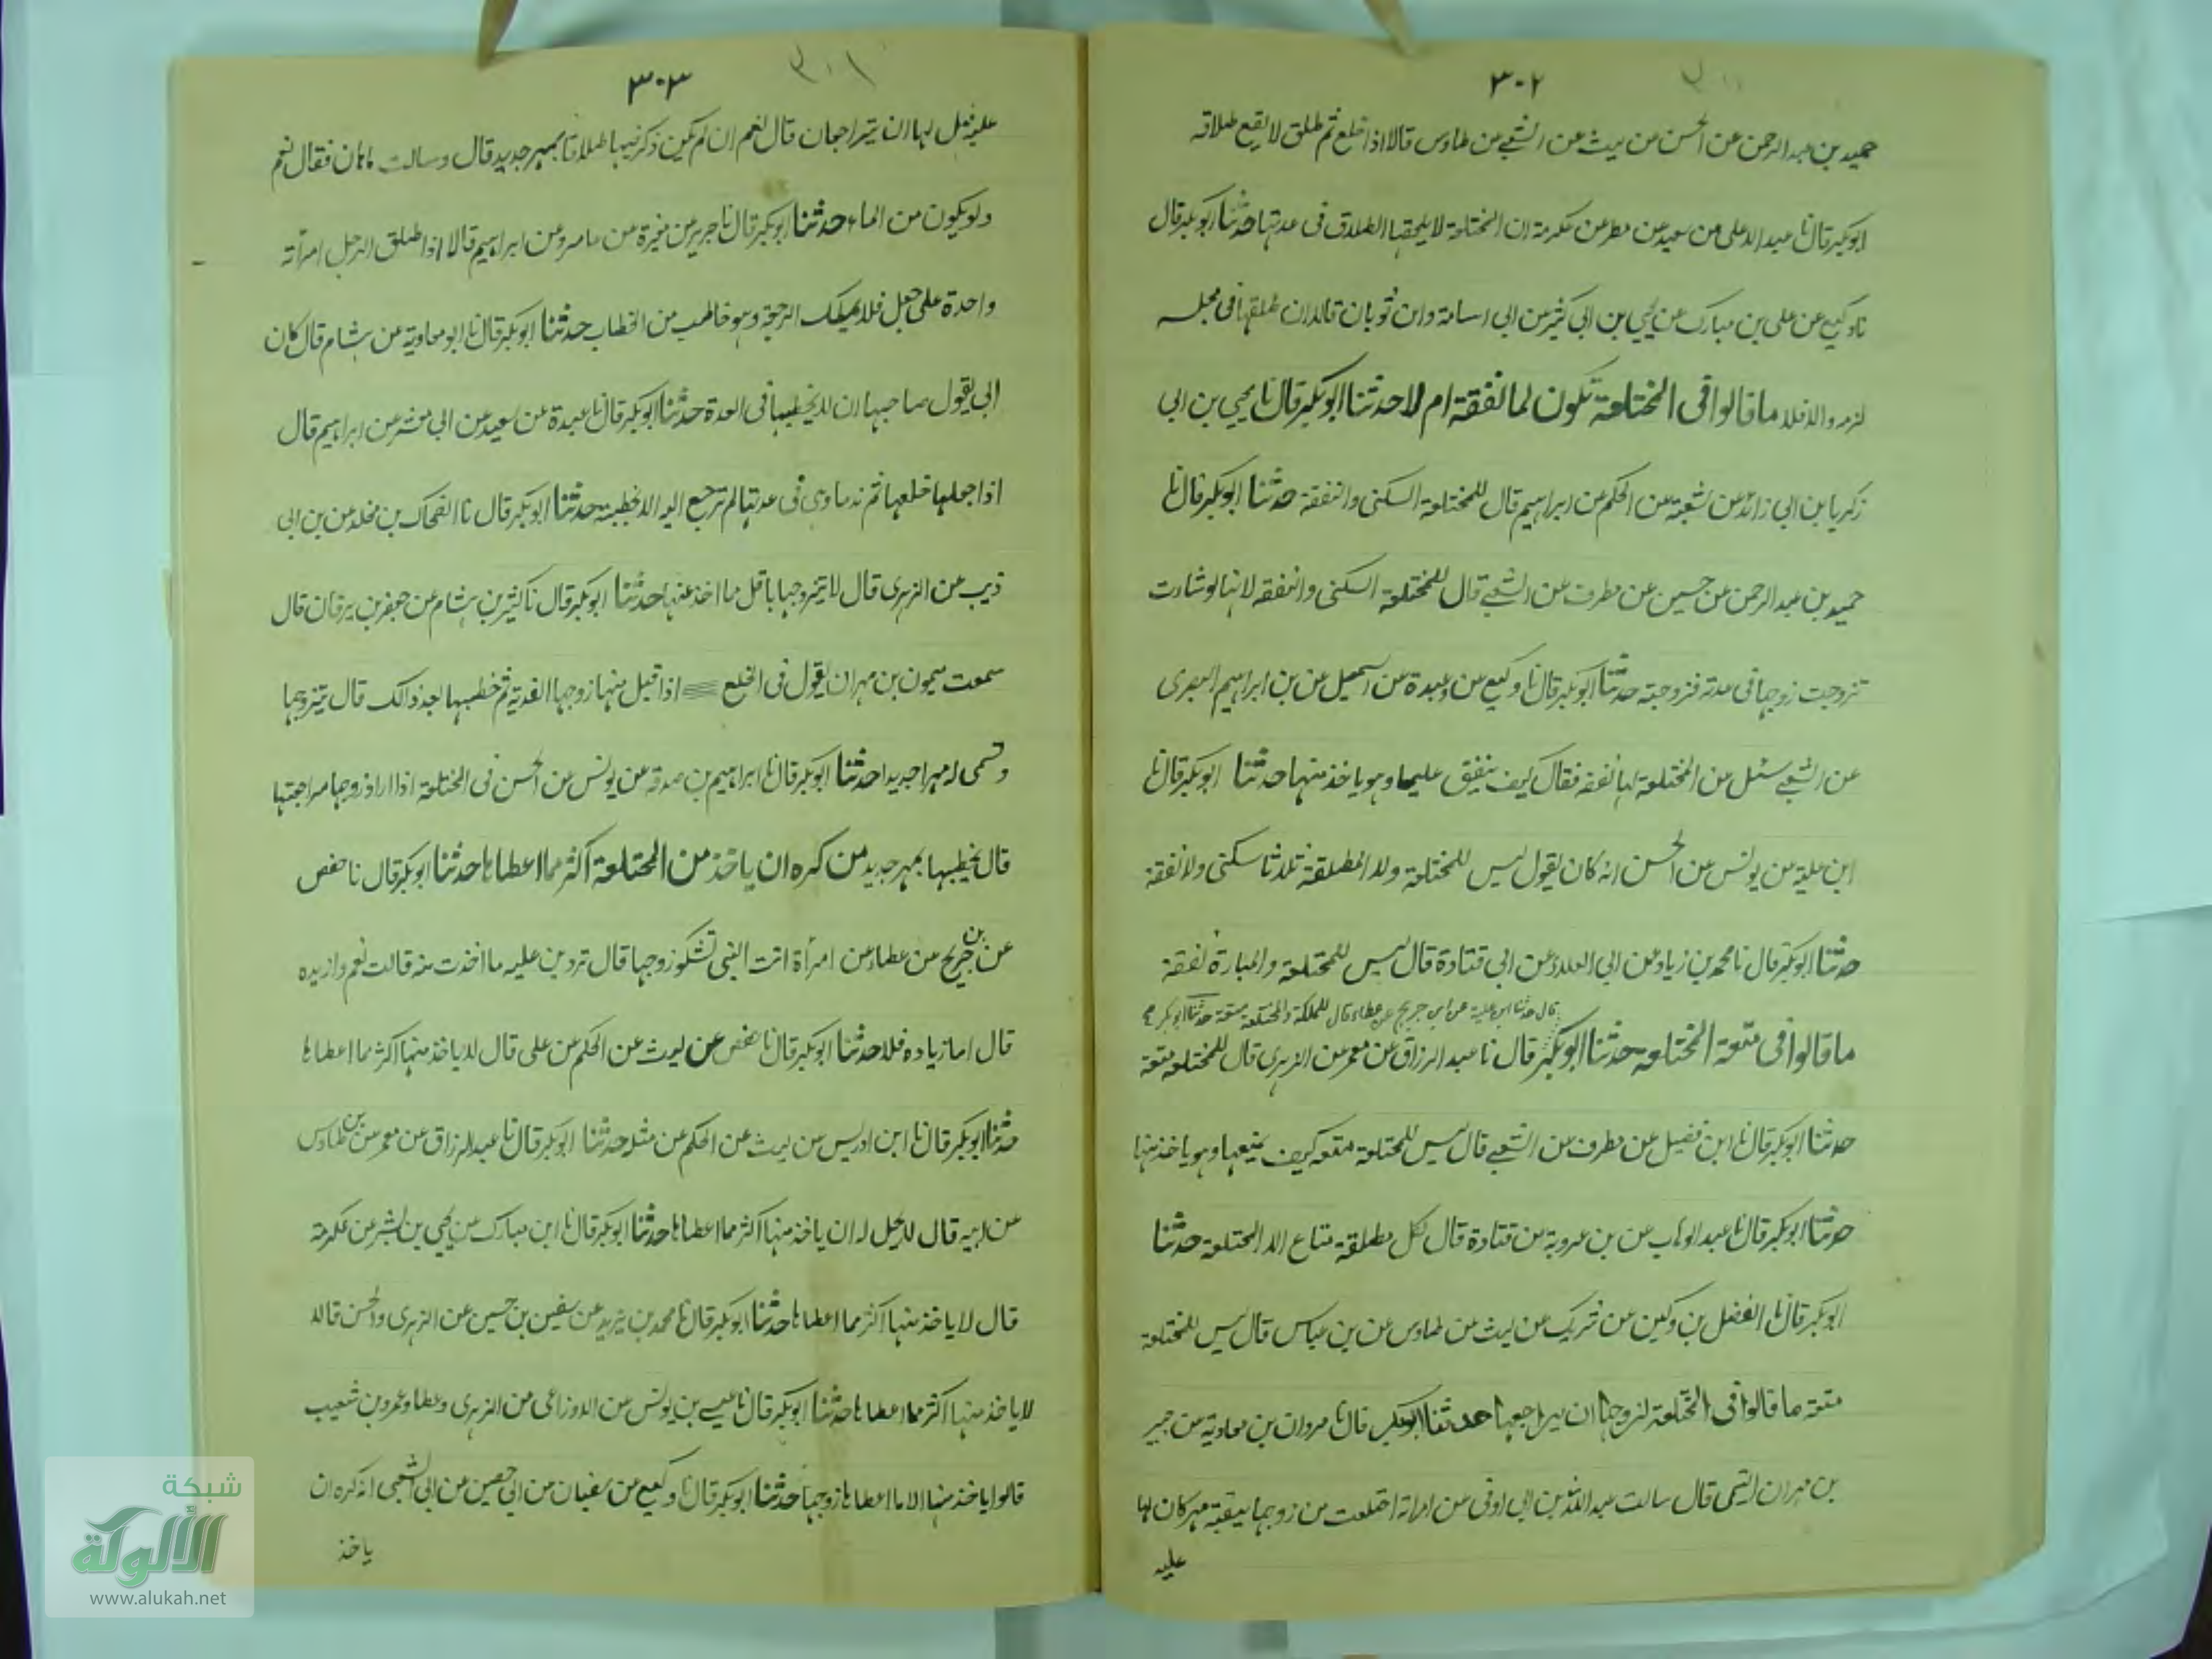 ٣٠٢
حميد بن عبد الرحمن عن الحسن عن ليث عن الشعبي عن طاوس قالا اذا خلع ثم طلق لا يقع طلاقه
ابو بكر قال نا عبد الاعلى عن سعيد عن مطر عن عكرمة ان المختلعة لا يلحقها الطلاق فى عدتها حدثنا ابو بكر قال
نا وكيع عن على بن مبارك عن يحيى بن ابى كثير عن ابى اسامة وابن ثوبان قالا ان طلقها فى مجلسه
لزمه والا فلا ما قالوا فى المختلعة تكون لها نفقة ام لا حدثنا ابو بكر قال نا يحيى بن ابى
زكريا بن ابى زائد عن شعبة عن الحكم عن ابراهيم قال للمختلعة السكنى والنفقة حدثنا ابو بكر قال نا
حميد بن عبد الرحمن عن حسين عن مطرف عن الشعبي قال للمختلعة السكنى والنفقة لانها لو شاءت
تزوجت زوجها فى عدته فتزوجته حدثنا ابو بكر قال نا وكيع عن وعبدة عن اسمعيل عن بن ابراهيم البصرى
عن الشعبي سئل عن المختلعة لها نفقة فقال كيف ينفق عليها وهو ياخذ منها حدثنا ابو بكر قال نا
ابن علية عن يونس عن الحسن انه كان يقول ليس للمختلعة ولا المطلقة ثلاثا سكنى ولا نفقة
حدثنا ابو بكر قال نا محمد بن زياد عن ابى العلاء عن ابى قتادة قال ليس للمختلعة والمبارة نفقة
قال حدثنا ابن علية عن ابن جريج عن عطاء قال للملكة والمختلعة متعة حدثنا ابو بكر
ما قالوا فى متعة المختلعة حدثنا ابو بكر قال نا عبد الرزاق عن معمر عن الزهرى قال للمختلعة متعة
حدثنا ابو بكر قال نا ابن فضيل عن مطرف عن الشعبي قال ليس للمختلعة متعه كيف يمتعها وهو ياخذ منها
حدثنا ابو بكر قال نا عبد الوهاب عن بن عروبة عن قتادة قال لكل مطلقة متاع الا المختلعة حدثنا
ابو بكر قال نا الفضل بن دكين عن شريك عن ليث عن طاوس عن بن عباس قال ليس للمختلعة
متعة ما قالوا فى المختلعة لزوجها ان يراجعها حدثنا ابو بكر قال نا مروان بن معاوية عن جبير
بن مهران التيمى قال سالت عبد الله بن ابى اوفى عن امراة اختلعت من زوجها ببقية مهر كان لها
عليه
٣٠٣
عليه هل لها ان يتراجعان قال نعم ان لم يكن ذكر فيها طلاقا بمهر جديد قال وسالت ماهان فقال نعم
ولو بكوز من الماء حدثنا ابو بكر قال نا جرير عن مغيرة عن عامر وعن ابراهيم قالا اذا طلق الرجل امراته
واحدة على جعل فلا يملك الرجعة وهو خاطب من الخطاب حدثنا ابو بكر قال نا ابو معاوية عن هشام قال كان
ابى يقول صاحبها ان لا يخطبها فى العدة حدثنا ابو بكر قال نا عبدة عن سعيد عن ابى معشر عن ابراهيم قال
اذا جعلها خلعها ثم ندما وى فى عدتها لم ترجع اليه الا بخطبة حدثنا ابو بكر قال نا الضحاك بن مخلد عن بن ابى
ذيب عن الزهرى قال لا يتزوجها باقل مما اخذ منها حدثنا ابو بكر قال نا كثير بن هشام عن جعفر بن برقان قال
سمعت ميمون بن مهران يقول فى الخلع اذا قبل منها زوجها الفدية ثم خطبها بعد ذالك قال يتزوجها
وتسمى له مهرا جديدا حدثنا ابو بكر قال نا ابراهيم بن صدقه عن يونس عن الحسن فى المختلعة اذا اراد زوجها مراجعتها
قال يخطبها بمهر جديد من كره ان ياخذ من المختلعة اكثر مما اعطاها حدثنا ابو بكر قال نا حفص
عن بن جريج عن عطاء عن امرأة اتت النبى تشكو زوجها قال تردين عليه ما اخذت منه قالت نعم وازيده
قال اما زيادة فلا حدثنا ابو بكر قال نا حفص عن ليث عن الحكم عن على قال لا ياخذ منها اكثر مما اعطاها
حدثنا ابو بكر قال نا ابن ادريس عن ليث عن الحكم عن مثله حدثنا ابو بكر قال نا عبد الرزاق عن معمر عن بن طاوس
عن ابيه قال لا يحل له ان ياخذ منها اكثر مما اعطاها حدثنا ابو بكر قال نا ابن مبارك عن يحيى بن بشر عن عكرمة
قال لا ياخذ منها اكثر مما اعطاها حدثنا ابو بكر قال نا محمد بن يزيد عن سفين بن حسين عن الزهرى والحسن قالا
لا ياخذ منها اكثر مما اعطاها حدثنا ابو بكر قال نا عيسى بن يونس عن الاوزاعى عن الزهرى وعطاء وعمرو بن شعيب
قالوا ياخذ منها الا ما اعطاها زوجها حدثنا ابو بكر قال نا وكيع عن سفيان عن ابى حصين عن ابى الشعبى انه كره ان
ياخذ
شبكة
الألوكة
www.alukah.net